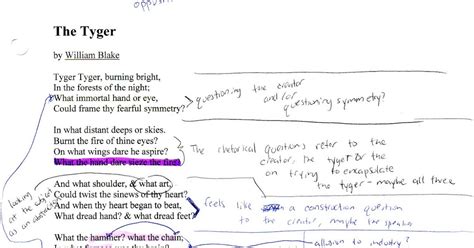 The Tyger
by William Blake
Tyger Tyger, burning bright,
In the forests of the night;
What immortal hand or eye,
Could frame thy fearful symmetry?
questioning the creator
and/or
questioning symmetry?
In what distant deeps or skies.
Burnt the fire of thine eyes?
On what wings dare he aspire?
What the hand dare sieze the fire?
The rhetorical questions refer to the
creator, the tyger or the
on trying to encapsulate
the tyger - maybe all three
looking
at the tyger
as an abstract
And what shoulder, & what art,
Could twist the sinews of thy heart?
And when thy heart began to beat,
What dread hand? & what dread feet?
feels like a construction question
to the creator, maybe the speaker
What the hammer? what the chain,
allusion to industry?